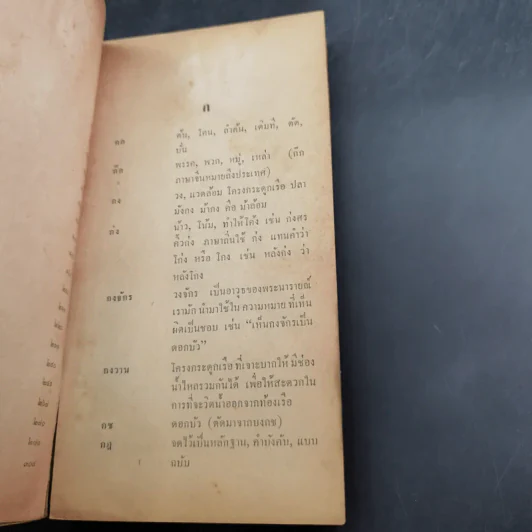 ก
กก ต้น, โคน, ลำต้น, เต็มที่, ตัด,
บั่น
ก๊ก พรรค, พวก, หมู่, เหล่า (ก๊ก
ภาษาจีนหมายถึงประเทศ)
กง วง, แวดล้อม โครงกระดูกเรือ ปลา
มังกง ม้ากง คือ ม้าล้อม
ก่ง น้าว, โน้ม, ทำให้โค้ง เช่น ก่งศร
คิ้วก่ง ภาษาถิ่นใช้ ก่ง แทนคำว่า
โก่ง หรือ โกง เช่น หลังก่ง ว่า
หลังโกง
กงจักร วงจักร เป็นอาวุธของพระนารายณ์
เรามัก นำมาใช้ใน ความหมาย ที่เห็น
ผิดเป็นชอบ เช่น “เห็นกงจักรเป็น
ดอกบัว”
กงวาน โครงกระดูกเรือ ที่เจาะบากให้ มีช่อง
น้ำไหลรวมกันได้ เพื่อให้สะดวกใน
การที่จะวิดน้ำออกจากท้องเรือ
กช ดอกบัว (ตัดมาจากบงกช)
กฎ จดไว้เป็นหลักฐาน, คำบังคับ, แบบ
ฉบับ